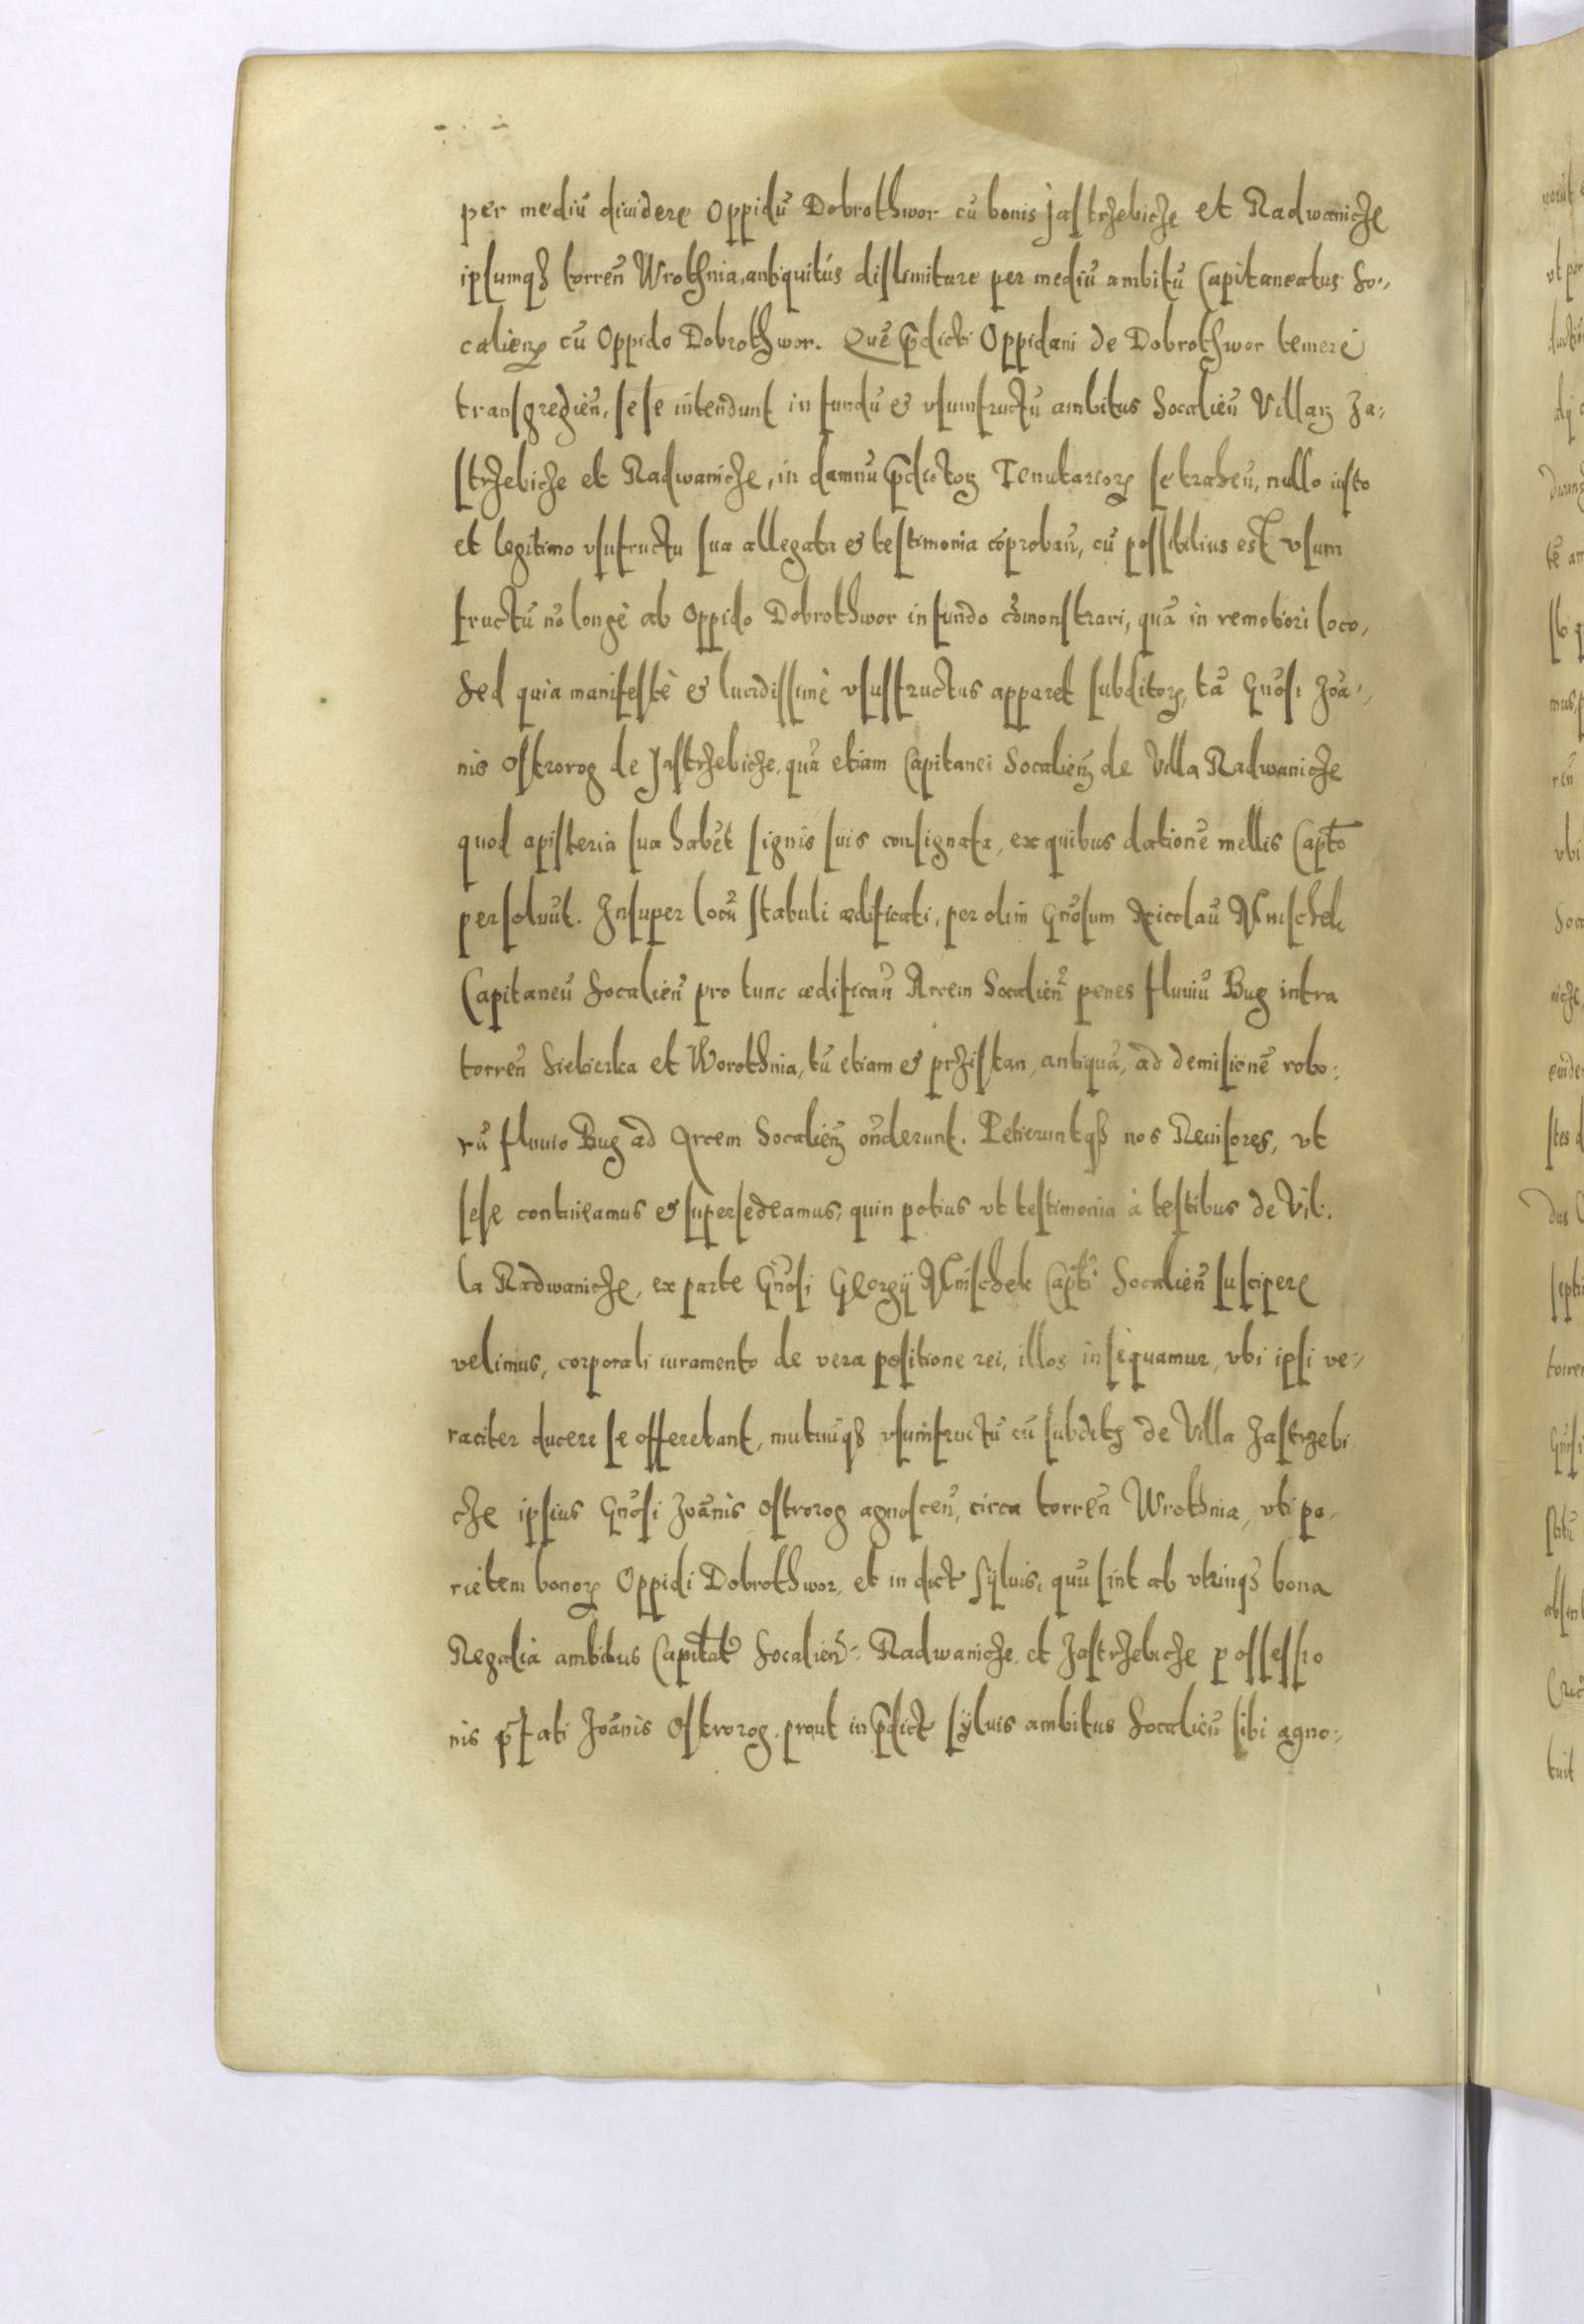 per mediũ diuidere Oppidũ Dobrothwor cũ bonis Jastrzebicze et Radwanicze
ipsumqз torreñ Wrothnia, antiquitús dislimitare per mediũ ambitũ Capitaneatus So-
calienꝭ cũ Oppido Dobrothwor. Quẽ p̃dicti Oppidani de Dobrothwor temerè
transgredieñ, sese intendunt in fundũ & vsumfructũ ambitus Socalieñ Villarꝫ Ja-
strzebicze et Radwanicze, in damnũ p̃dictorꝫ Tenutariorꝝ se traheñ, nullo iusto
et legitimo vsufructu sua allegata & testimonia cõprobañ, cũ possibilius est vsum
fructũ nõ longè ab Oppido Dobrothwor in fundo cõmonstrari, quã in remotiori loco,
Sed quia manifestè & lucidissimè vsusfructus apparet subditorꝝ, tã Gñosi Joã-
nis Ostrorog de Jastrzebicze, quã etiam Capitanei Socalienꝫ de Villa Radwanicze
quod apisteria sua habẽt signis suis consignata, ex quibus dationẽ mellis Capto
persoluũt. Insuper locũ stabuli ædificati, per olim Gñosum Nicolaũ Mnischek
Capitaneũ Socalieñ pro tunc ædificañ Arcem Socalieñ penes fluuiũ Bug intra
torreñ Siebierka et Worothnia, tũ etiam & przistan, antiquã, ad demisionẽ robo-
rũ fluuio Bug ad Arcem Socalienꝫ oñderunt. Petieruntqз nos Reuisores, vt
sese contineamus & supersedeamus, quin potius vt testimonia à testibus de Vil-
la Radwanicze, ex parte Gñosi Georgÿ Mnischek Capti Socalieñ suscipere
velimus, corporali iuramento de vera positione rei, illos insequamur, vbi ipsi ve-
raciter ducere se offerebant, mutuũqз vsumfructũ cũ subditꝫ de Villa Jastrzebi
cze ipsius Gñosi Joãnis Ostrorog agnosceñ, circa torreñ Wrothnia, vti pa-
rietem bonorꝝ Oppidi Dobrothwor, et in dict syluis, quũ sint ab vtrinqз bona
Regalia ambitus Capitat Socalieñ- Radwanicze, et Jastrzebicze possessio
nis p̃fati Joãnis Ostrorog, prout in p̃dict sÿluis ambitus Socalieñ sibi agno-